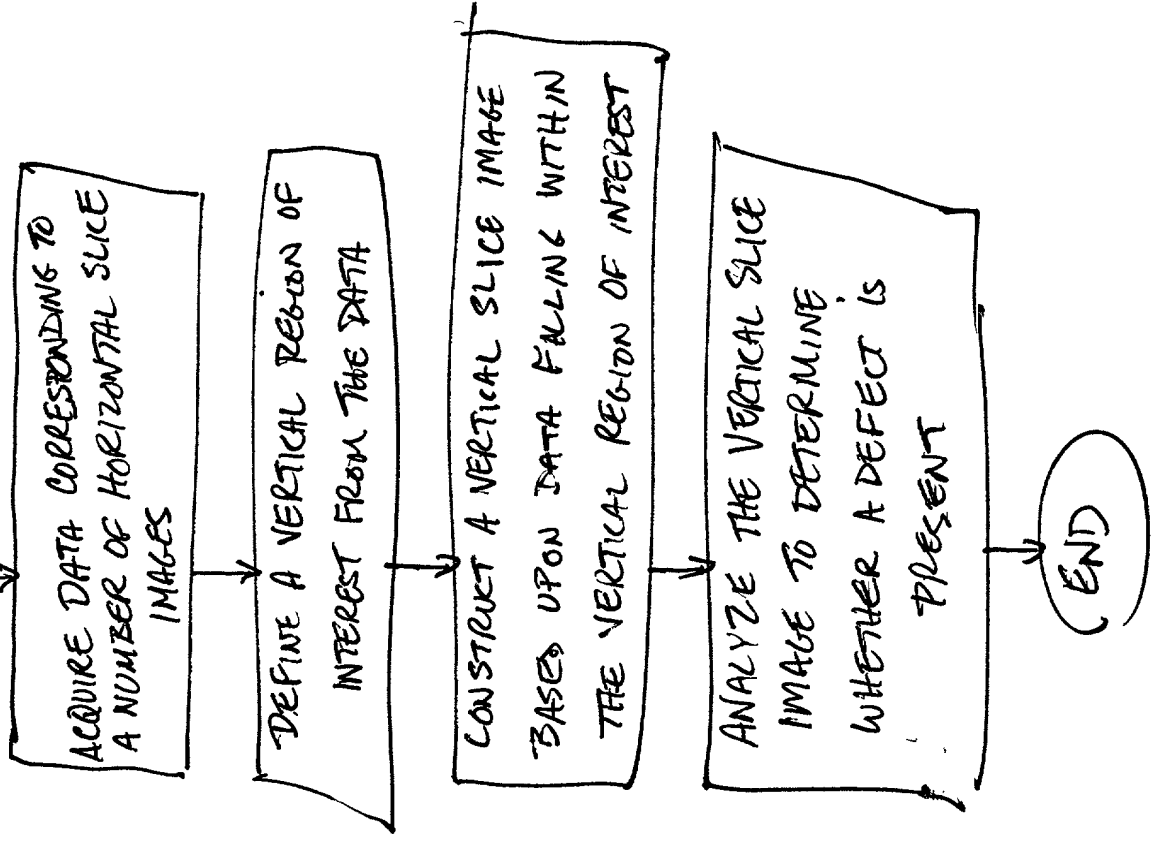 ACQUIRE DATA CORRESPONDING TO
A NUMBER OF HORIZONTAL SLICE
IMAGES
DEFINE A VERTICAL REGION OF
INTEREST FROM THE DATA
CONSTRUCT A VERTICAL SLICE IMAGE
BASED UPON DATA FALLING WITHIN
THE VERTICAL REGION OF INTEREST
ANALYZE THE VERTICAL SLICE
IMAGE TO DETERMINE
WHETHER A DEFECT IS
PRESENT
END